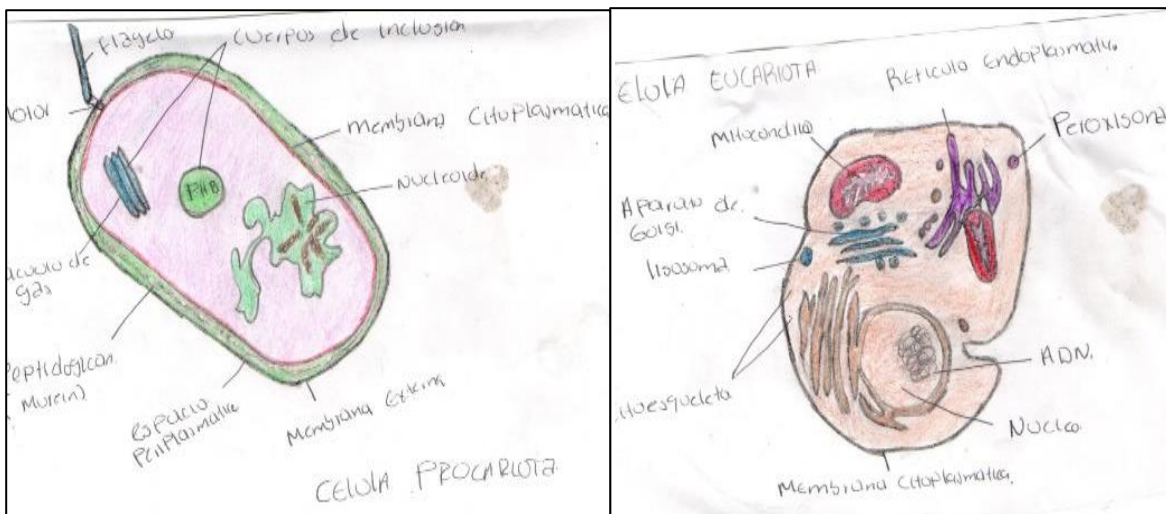 Flagelo
Cuerpos de Inclusión
otor
Membrana Citoplasmatica
Nucleoide
PHB
acuolo de
gas
Peptidoglican
Murein)
espacio
Periplasmatico
Membrana Externa
CELULA PROCARIOTA
ELULA EUCARIOTA
Reticulo Endoplasmatico
Mitocondria
Peroxisoma
Aparato de
Golgi.
lisosoma
ADN.
itoesqueleta
Nucleo
Membrana Citoplasmatica